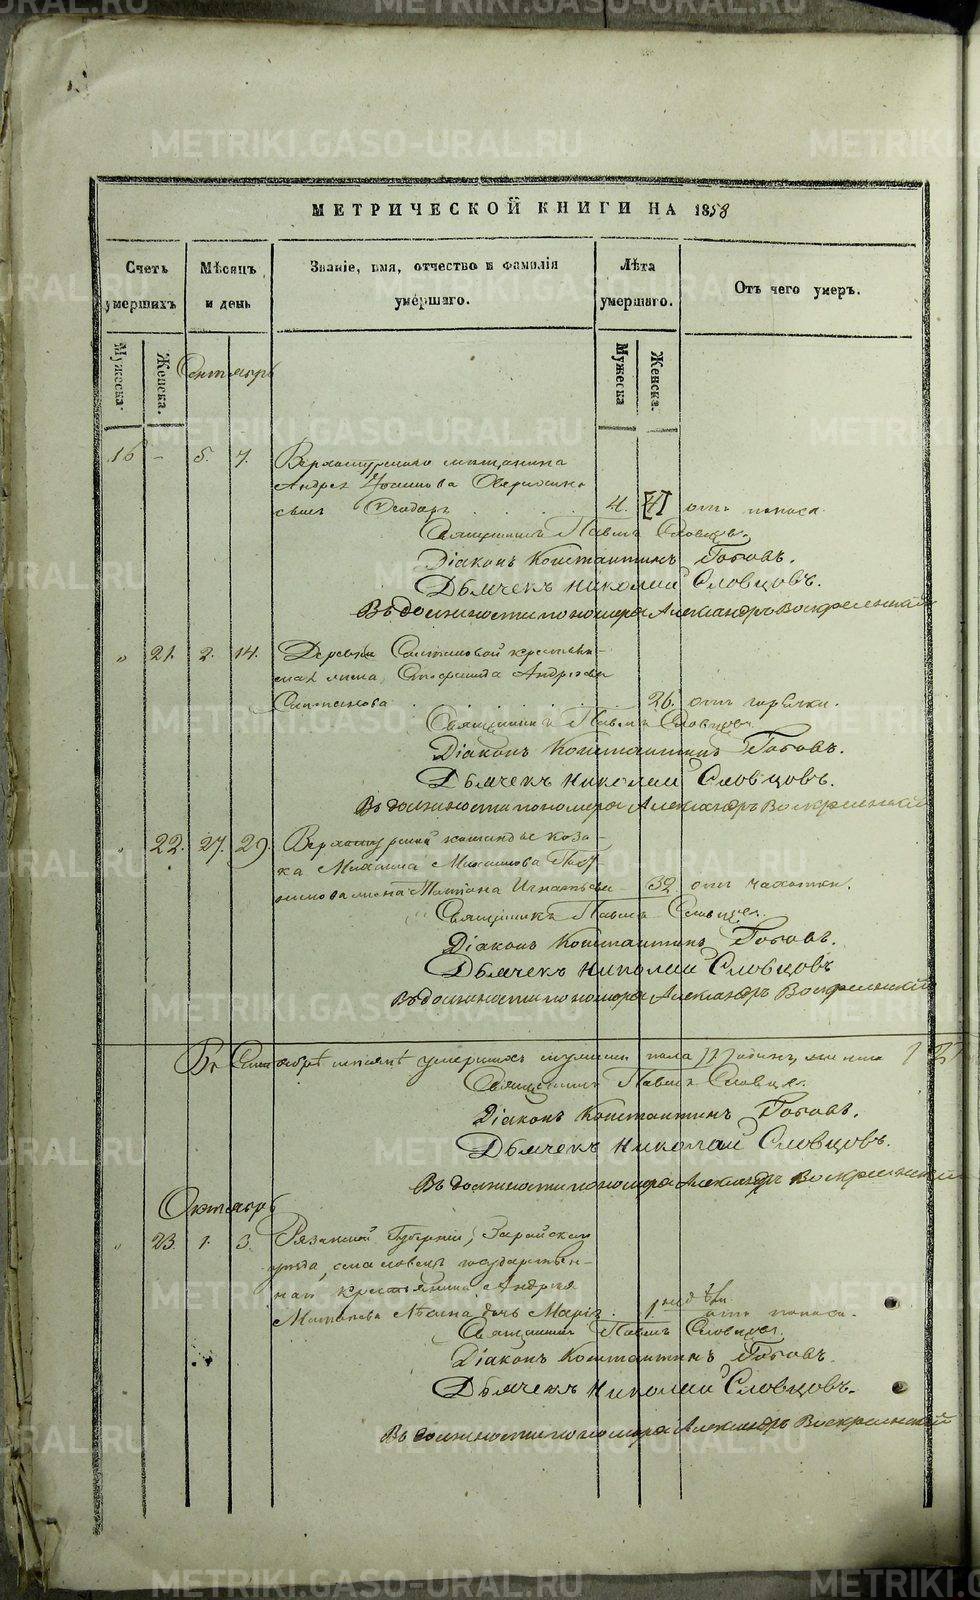 МЕТРИЧЕСКОЙ КНИГИ НА 1858
Счетъ умершихъ
Мѣсяцъ и день
Званіе, имя, отчество и фамилія умершаго.
Лѣта умершаго.
Отъ чего умеръ.
Мужеска.
Женска.
Мужеска
Женска.
Сентябрь
16 - 5. 7. Верхотурскаго мѣщанина
Андрея
сынъ Ѳеодоръ 4. отъ поноса
Священникъ Павелъ Словцовъ.
Діаконъ Константинъ Топовъ.
Дьячекъ Николай Словцовъ.
Въ должности пономаря Александръ Воскресенскій
" 21. 2. 14. Деревни крестьяни-
на жена, Андреева
26. отъ горячки.
Священникъ Павелъ Словцовъ
Діаконъ Константинъ Топовъ.
Дьячекъ Николай Словцовъ.
Въ должности пономаря Александръ Воскресенскій
" 22. 27. 29. Верхотурской команды коза-
ка Михаила
жена Татіана Игнатьева 32 отъ чахотки.
Священникъ Павелъ Словцовъ.
Діаконъ Константинъ Топовъ.
Дьячекъ Николай Словцовъ
Въ должности пономаря Александръ Воскресенскій
Въ Сентябрѣ мѣсяцѣ умершихъ мужеска пола один, женска
Священникъ Павелъ Словцовъ.
Діаконъ Константинъ Топовъ.
Дьячекъ Николай Словцовъ.
Въ должности пономаря Александръ Воскресенскій
Октябрь
" 23. 1. 3. Рязанской Губерніи, Зарайскаго
уѣзда, государствен-
наго крестьянина, Андрея
дочь Марія 1 нед. отъ поноса.
Священникъ Павелъ Словцовъ.
Діаконъ Константинъ Топовъ.
Дьячекъ Николай Словцовъ.
Въ должности пономаря Александръ Воскресенскій
METRIKI.GASO-URAL.RU